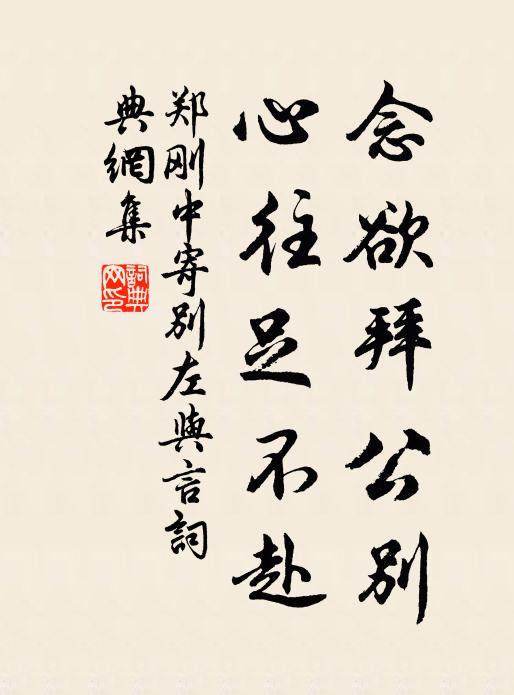 念欲拜公别
心往足不赴
郑刚中寄别左與言詞
典網集
詞典
网印